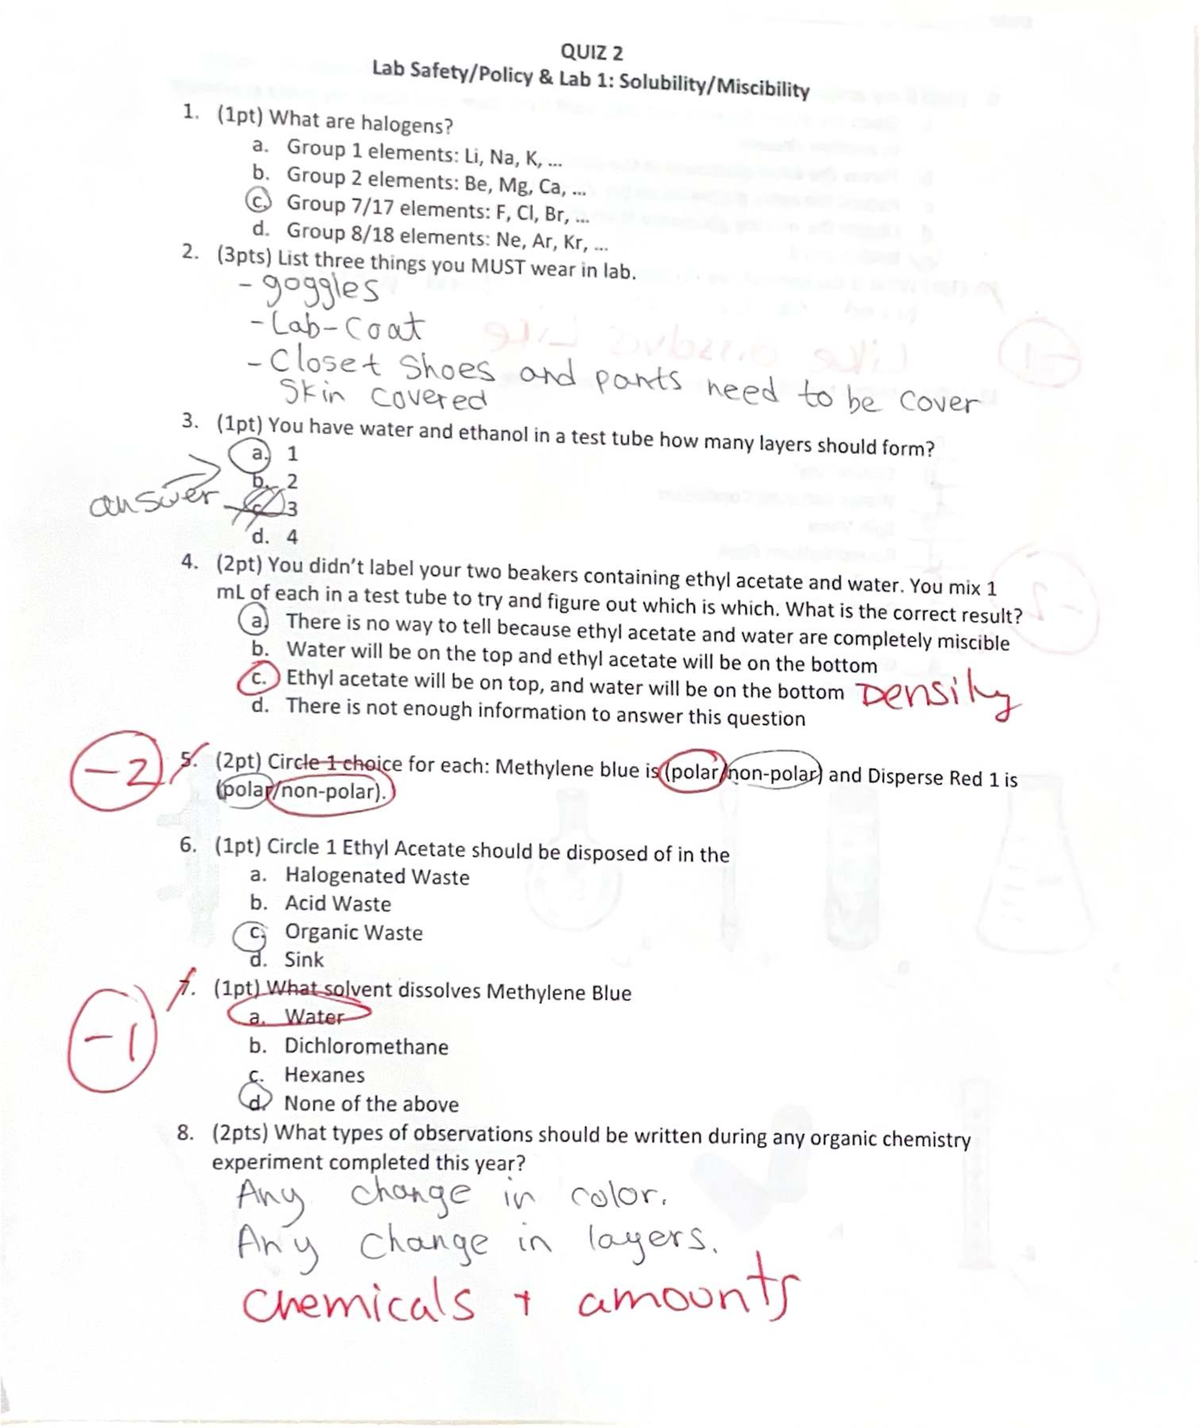 QUIZ 2
Lab Safety/Policy & Lab 1: Solubility/Miscibility
1. (1pt) What are halogens?
a. Group 1 elements: Li, Na, K, ...
b. Group 2 elements: Be, Mg, Ca, ...
c. Group 7/17 elements: F, Cl, Br, ...
d. Group 8/18 elements: Ne, Ar, Kr, ...
2. (3pts) List three things you MUST wear in lab.
- goggles
- Lab-coat
- Closet Shoes and pants need to be cover
Skin covered
3. (1pt) You have water and ethanol in a test tube how many layers should form?
a. 1
b. 2
answer c. 3
d. 4
4. (2pt) You didn't label your two beakers containing ethyl acetate and water. You mix 1
mL of each in a test tube to try and figure out which is which. What is the correct result?
a. There is no way to tell because ethyl acetate and water are completely miscible
b. Water will be on the top and ethyl acetate will be on the bottom
c. Ethyl acetate will be on top, and water will be on the bottom Density
d. There is not enough information to answer this question
-2 5. (2pt) Circle 1 choice for each: Methylene blue is (polar/non-polar) and Disperse Red 1 is
(polar/non-polar).
6. (1pt) Circle 1 Ethyl Acetate should be disposed of in the
a. Halogenated Waste
b. Acid Waste
c. Organic Waste
d. Sink
7. (1pt) What solvent dissolves Methylene Blue
-1 a. Water
b. Dichloromethane
c. Hexanes
d. None of the above
8. (2pts) What types of observations should be written during any organic chemistry
experiment completed this year?
Any change in color.
Any change in layers.
Chemicals + amounts